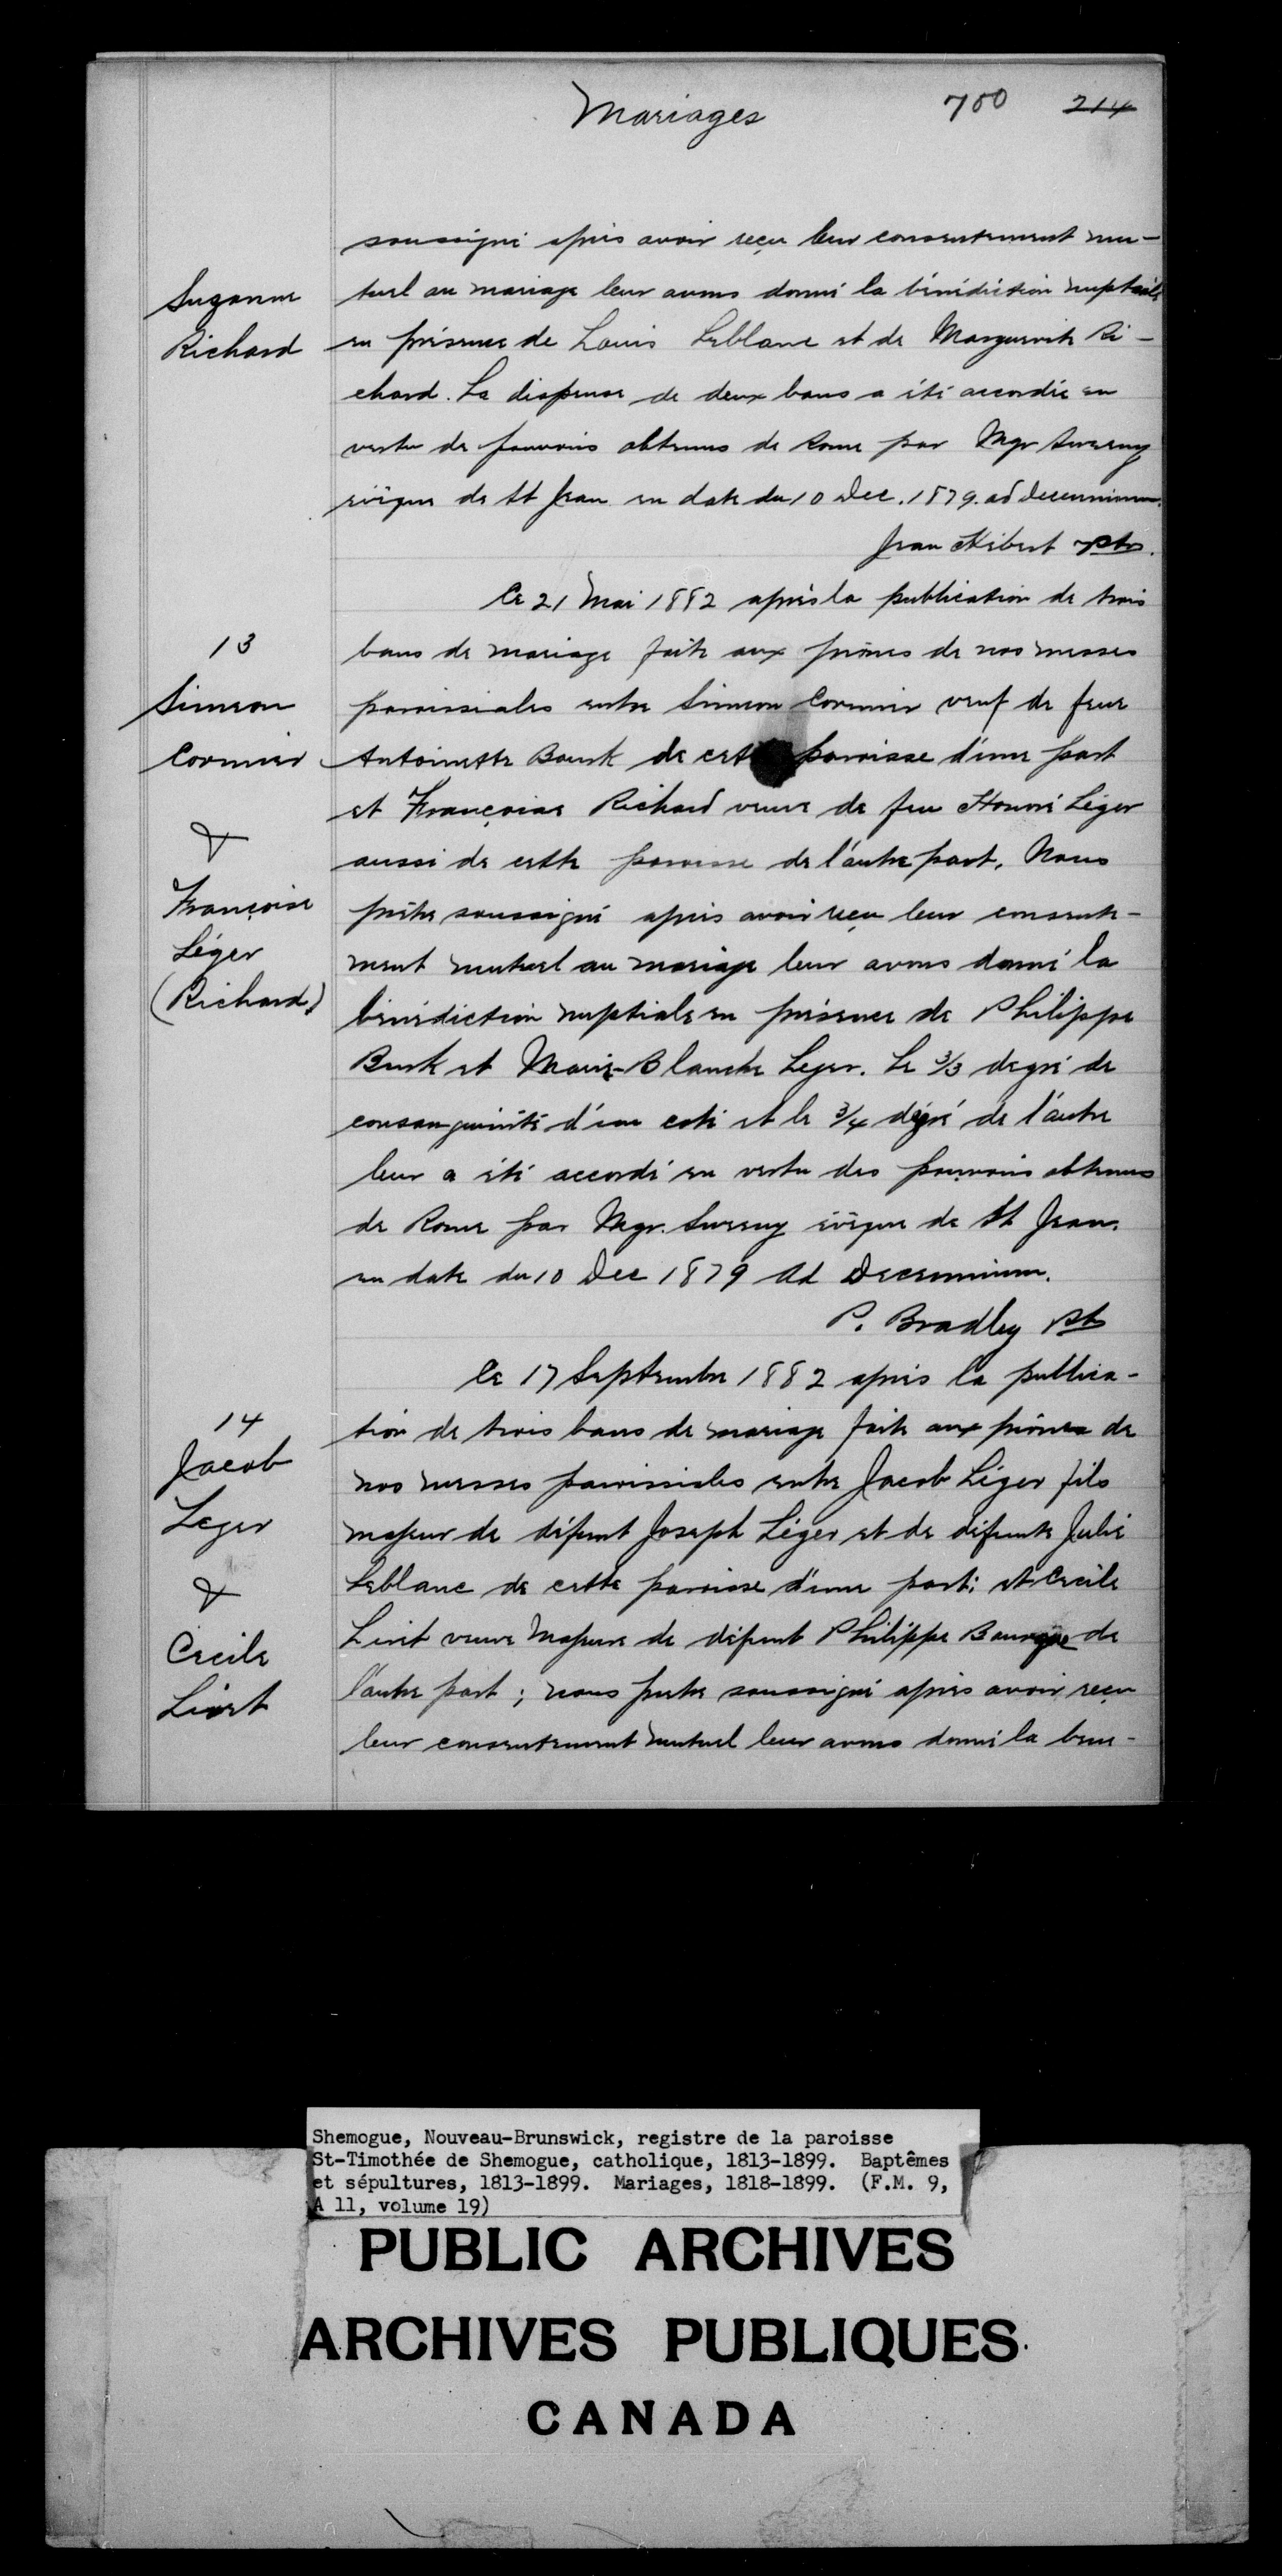 Mariages 700 214
soussigné après avoir reçu leur consentement mu-
tuel au mariage leur avons donné la bénédiction nuptiale
Suzanne
Richard
en présence de Louis Leblanc et de Marguerite Ri-
chard. La dispense de deux bans a été accordée en
vertu de pouvoirs obtenus de Rome par Mgr Sweeny
évêque de St Jean en date du 10 Dec. 1879. ad decennium.
Jean Hébert ptr.
Le 21 Mai 1882 après la publication de trois
13
Simeon
Cormier
&
Françoise
Léger
(Richard)
bans de mariage faite aux prônes de nos messes
paroissiales entre Simeon Cormier veuf de feue
Antoinette Bourk de cette paroisse d'une part
et Françoise Richard veuve de feu Honoré Léger
aussi de cette paroisse de l'autre part. Nous
prêtre soussigné après avoir reçu leur consente-
ment mutuel au mariage leur avons donné la
bénédiction nuptiale en présence de Philippe
Burk et Marie-Blanche Leger. Le 3/3 degré de
consanguinité d'un coté et le 3/4 dégré de l'autre
leur a été accordé en vertu des pouvoirs obtenus
de Rome par Mgr. Sweeny évêque de St Jean.
en date du 10 Dec 1879 Ad Decennium.
P. Bradley Pt
Le 17 Septembre 1882 après la publica-
14
Jacob
Leger
&
Cecile
Liret
tion de trois bans de mariage faite aux prônes de
nos messes paroissiales entre Jacob Léger fils
majeur de défunt Joseph Léger et de défunte Julie
Leblanc de cette paroisse d'une part; et Cecile
Liret veuve Majeure de défunt Philippe Bourque de
l'autre part; nous pretre soussigné après avoir reçu
leur consentement mutuel leur avons donné la bene-
Shemogue, Nouveau-Brunswick, registre de la paroisse
St-Timothée de Shemogue, catholique, 1813-1899. Baptêmes
et sépultures, 1813-1899. Mariages, 1818-1899. (F.M. 9,
A 11, volume 19)
PUBLIC ARCHIVES
ARCHIVES PUBLIQUES
CANADA